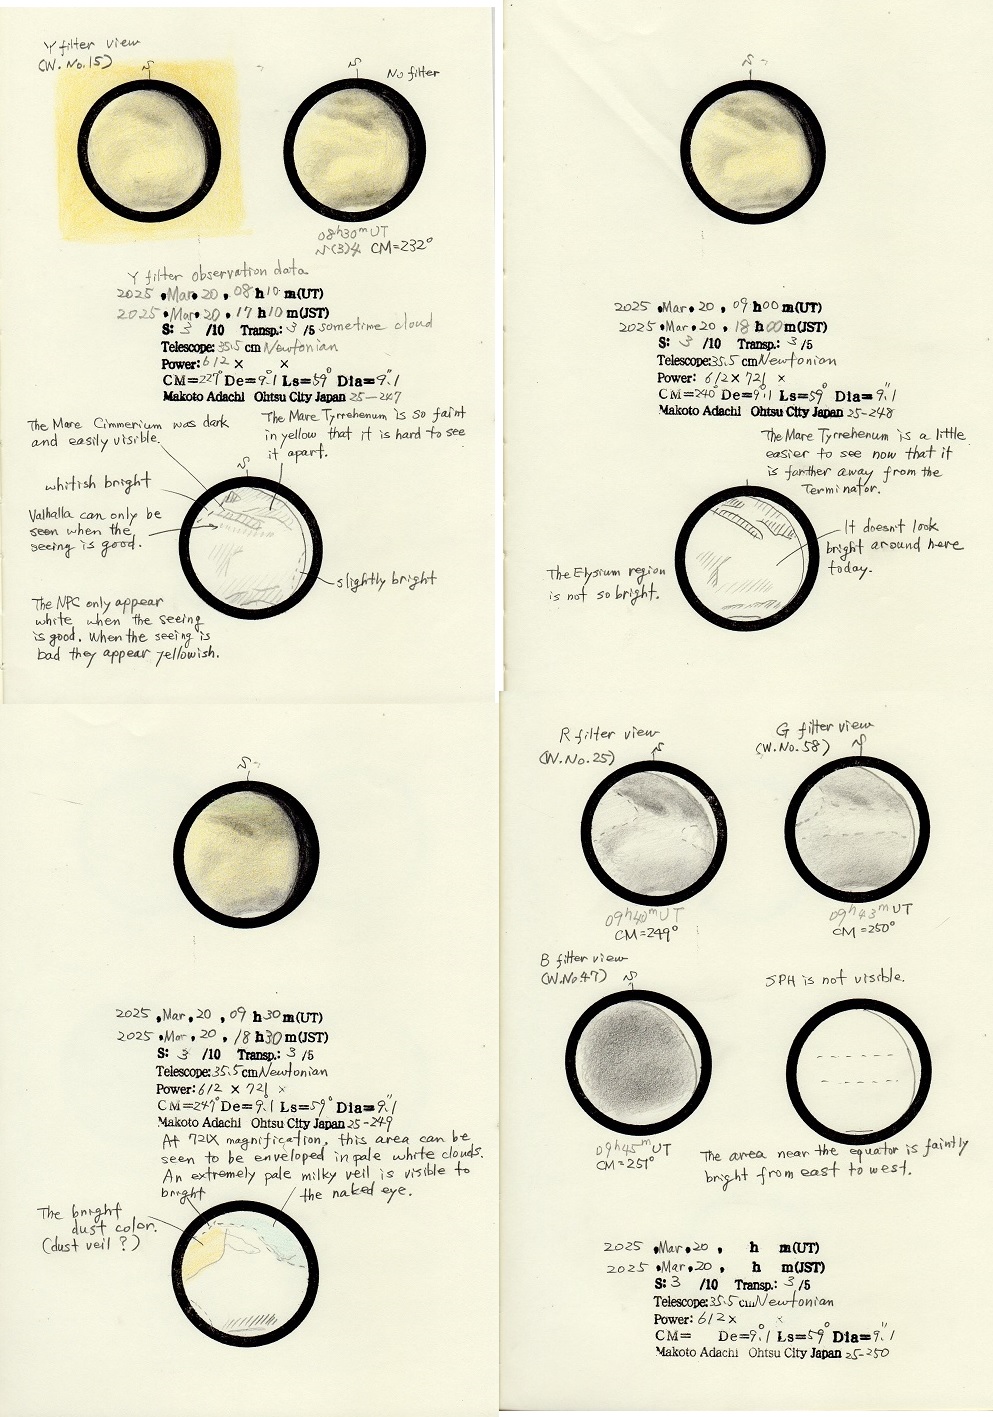 Y filter view
(W.No.15)
S
S
No filter
08h30m UT
S(3)4 CM=232°
Y filter observation data
2025 .Mar.20 , 08 h 10 m(UT)
2025 .Mar.20 , 17 h 10 m(JST)
S: 3 /10 Transp.: 3 /5 sometime cloud
Telescope: 35.5 cm Newtonian
Power: 612 × ×
CM=227° De=9.°1 Ls=59° Dia=9."1
Makoto Adachi Ohtsu City Japan 25-247
The Mare Cimmerium was dark
and easily visible.
The Mare Tyrrehenum is so faint
in yellow that it is hard to see
it apart.
S
whitish bright
Valhalla can only be
seen when the
seeing is good.
slightly bright
The NPC only appear
white when the seeing
is good. When the seeing is
bad they appear yellowish.
S
2025 .Mar.20 , 09 h 00 m(UT)
2025 .Mar.20 , 18 h 00 m(JST)
S: 3 /10 Transp.: 3 /5
Telescope: 35.5 cm Newtonian
Power: 612 × 721 ×
CM=240° De=9.°1 Ls=59° Dia=9."1
Makoto Adachi Ohtsu City Japan 25-248
The Mare Tyrrehenum is a little
easier to see now that it
is farther away from the
Terminator.
It doesn't look
bright around here
today.
The Elysium region
is not so bright.
S
2025 .Mar.20 , 09 h 30 m(UT)
2025 .Mar.20 , 18 h 30 m(JST)
S: 3 /10 Transp.: 3 /5
Telescope: 35.5 cm Newtonian
Power: 612 × 721 ×
CM=247° De=9.°1 Ls=59° Dia=9."1
Makoto Adachi Ohtsu City Japan 25-249
At 721X magnification, this area can be
seen to be enveloped in pale white clouds.
An extremely pale milky veil is visible to
the naked eye.
bright
The bright
dust color.
(dust veil?)
R filter view
(W.No.25)
S
G filter view
(W.No.58)
S
09h40m UT
CM=249°
09h43m UT
CM=250°
B filter view
(W.No.47)
S
SPH is not visible.
09h45m UT
CM=251°
The area near the equator is faintly
bright from east to west.
2025 .Mar.20 , h m(UT)
2025 .Mar.20 , h m(JST)
S: 3 /10 Transp.: 3 /5
Telescope: 35.5 cm Newtonian
Power: 612 × ×
CM= De=9.°1 Ls=59° Dia=9."1
Makoto Adachi Ohtsu City Japan 25-250